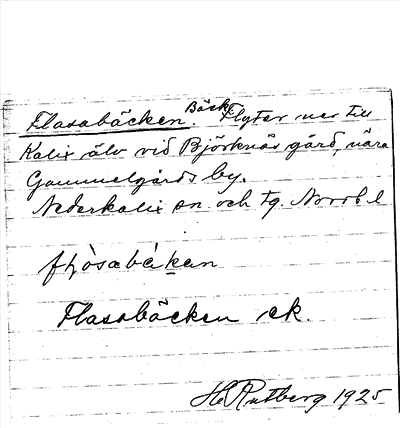 Flasabäcken. Bäck. Flyter ner till
Kalix älv vid Björknäs gård, nära
Gammelgårds by.
Nederkalix sn. och tg. Norrb. l
Flasabäcken ek.
H. Rutberg 1925